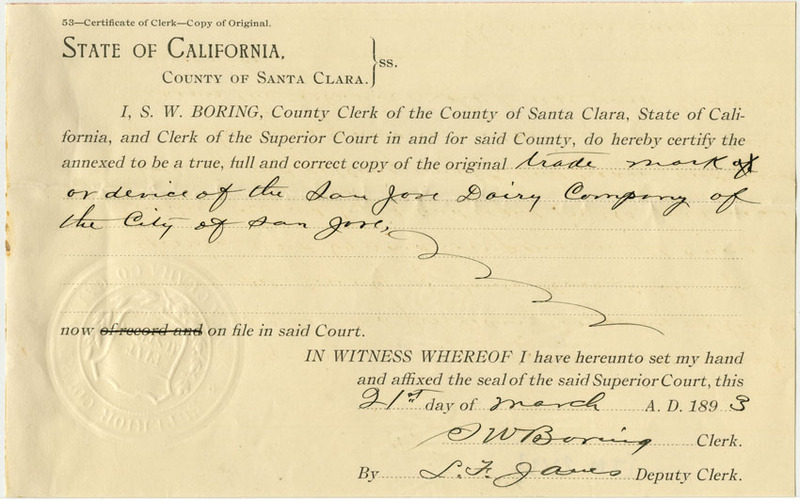 53—Certificate of Clerk—Copy of Original.
STATE OF CALIFORNIA,
COUNTY OF SANTA CLARA. } ss.
I, S. W. BORING, County Clerk of the County of Santa Clara, State of Cali-
fornia, and Clerk of the Superior Court in and for said County, do hereby certify the
annexed to be a true, full and correct copy of the original trade mark
or device of the San Jose Dairy Company of
the City of San Jose,
now of record and on file in said Court.
IN WITNESS WHEREOF I have hereunto set my hand
and affixed the seal of the said Superior Court, this
21st day of march A. D. 1893
S W Boring Clerk.
By L. F. James Deputy Clerk.